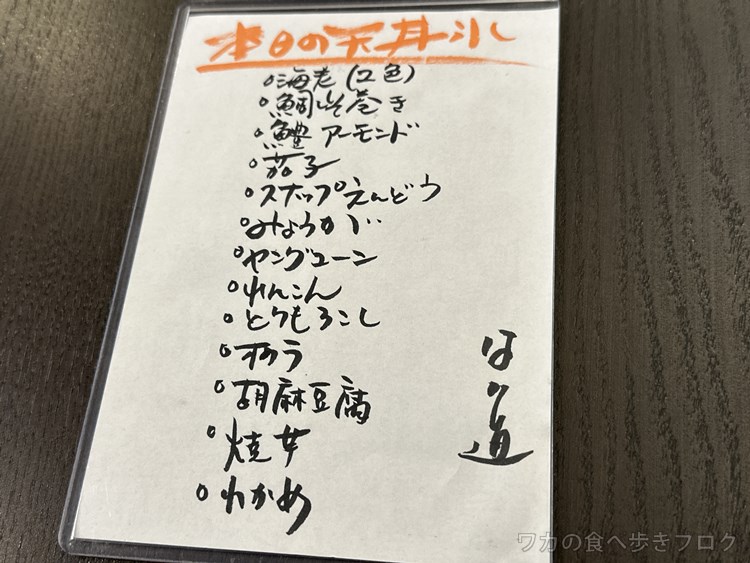 本日の天丼
○海老(2色)
○鯛しそ巻き
○鱧アーモンド
○茄子
○スナップえんどう
○みょうが
○ヤングコーン
○れんこん
○とうもろこし
○オクラ
○胡麻豆腐
○焼芋
○わかめ
ワカの食べ歩きブログ